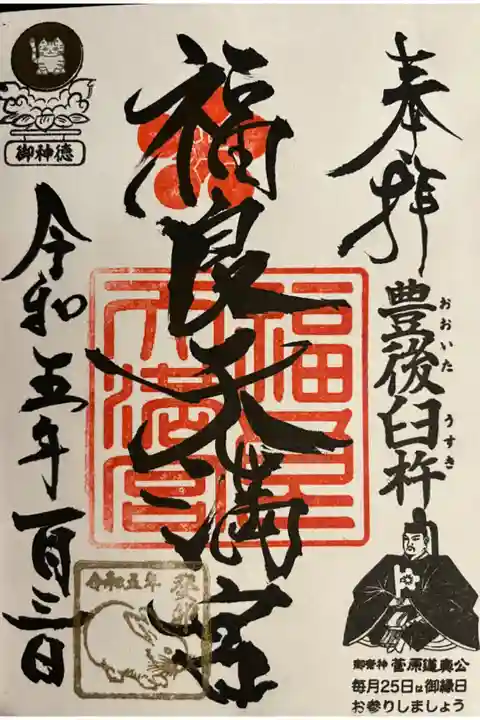 奉拝
おおいた うすき
豊後臼杵
福良天満宮
福良天満宮
御神徳
令和五年一月三日
令和五年
御祭神 菅原道真公
毎月25日は御縁日
お参りしましょう